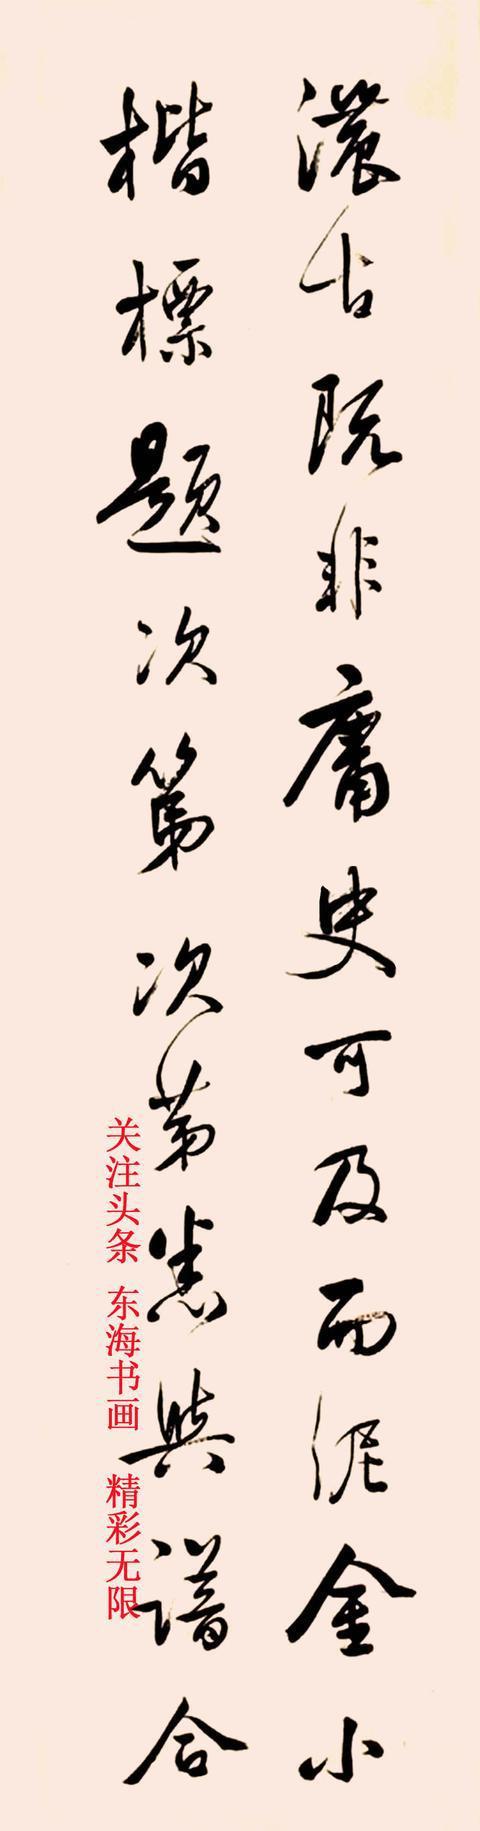 濃古既非庸史可及而泥金小
楷標題次第次第悉與譜合
关注头条 东海书画 精彩无限